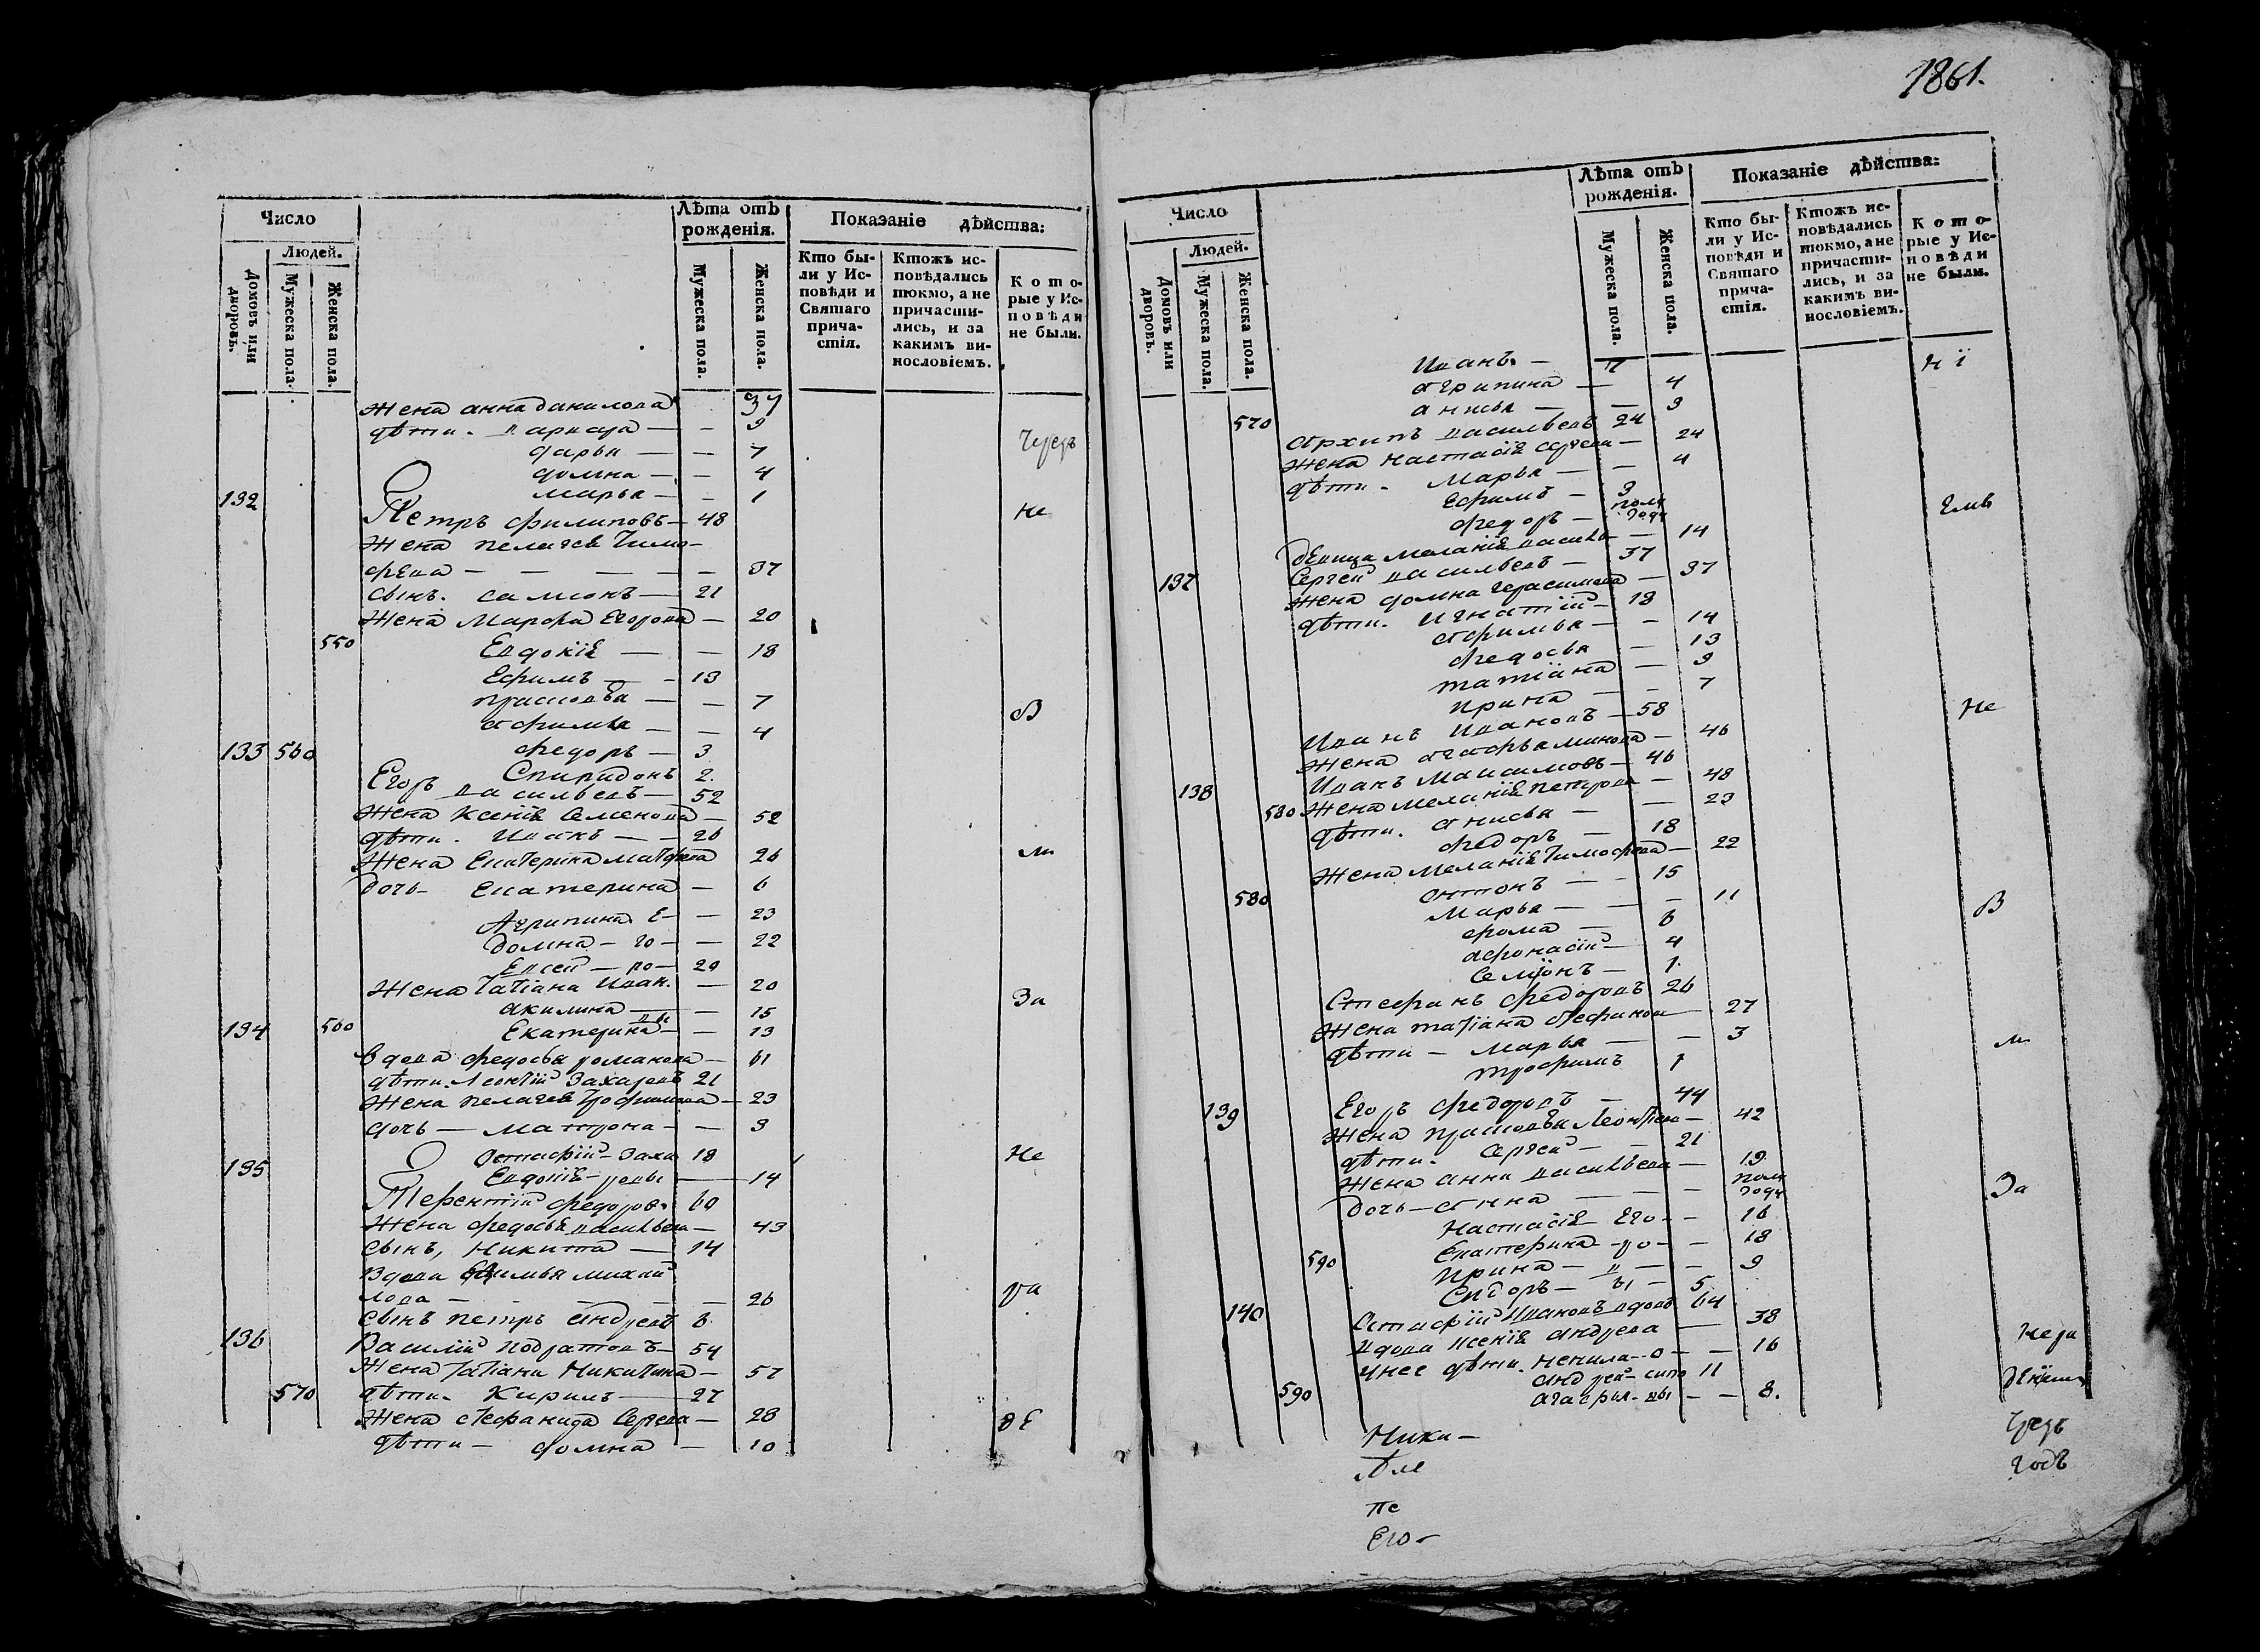 1861.
Число
Людей.
Домовъ или дворовъ.
Мужеска пола.
Женска пола.
Лѣта отъ рожденія.
Мужеска пола.
Женска пола.
Показаніе дѣйства:
Кто были у Исповѣди и Святаго причастія.
Ктожъ исповѣдались токмо, а не причастились, и за какимъ винословіемъ.
Которые у Исповѣди не были.
Жена анна данилова 37
дѣти. варвара — — 9
дарья — — 7
домна — — 4
марья — — 1
132 Петръ филиповъ — 48
Жена пелагея Тимо-
феева — — — — — 37
сынъ. самсонъ — 21
Жена Марфа Егорова — 20
550 Евдокія — — 18
Ефимъ — — 13
прасковья — — 7
афимья — — 4
133 560 федоръ — 3
Спиридонъ 2.
Егоръ васильевъ — 52
Жена Ксенія Семенова — 52
дѣти. Иванъ — — 26
Жена Екатерина матфеева 26
дочь — Екатерина — 6
Агрипина Е — — 23
домна — го — — 22
Евсей — ро — 20
Жена Татіана Иван. — 20
акилина — — 15
134 560 Екатерина — — 13
вдова федосья романова — 61
дѣти. Леонтій Захаровъ 21
Жена пелагея Трофимова — 23
дочь — Матрона — — 3
Остафій — Заха 18
135 Евдокія — ровы — 14
Терентій федоров. 60
Жена федосья васильева — 43
сынъ, Никита — 14
Вдова афимья михаи
лова — — — — — 26
сынъ петръ андреев 8.
136 Василій кодратовъ — 54
Жена Татіана Никитина — 57
570 дѣти. Кирилъ — 27
Жена стефанида Сергеева — 28
дѣти — домна — 10
Чрезъ
Не
В
ли
За
Не
ра
дЕ
Число
Людей.
Домовъ или дворовъ.
Мужеска пола.
Женска пола.
Лѣта отъ рожденія.
Мужеска пола.
Женска пола.
Показаніе дѣйства:
Кто были у Исповѣди и Святаго причастія.
Ктожъ исповѣдались токмо, а не причастились, и за какимъ винословіемъ.
Которые у Исповѣди не были.
Иванъ — 7
агрипина — 4
570 анисья — — 3
архипъ васильевъ 24
Жена настасія сергеева — 24
дѣти — Марья — — 4
Ефимъ — 3
федоръ — полъ года
дЕвица меланія василь — — 14
137 Сергей васильевъ — 37
Жена домна герасимова — 37
дѣти. Игнатій — 18
афимья — — 14
федосья — 13
татіана — 9
ирина — — 7
Иванъ Ивановъ — 58
Жена агафья минова — 46
138 Иванъ Максимовъ — 46
580 Жена меланія петрова — 48
дѣти. анисья — — 23
федоръ — 18
Жена меланія Тимофеева — 22
580 антонъ — — 15
Марья — — — 11
фома — 8
афонасій — 4
Семіонъ — 1.
Стефанъ федоровъ 26
Жена татіана стефанова — 27
дѣти — марья — — 3
трофимъ 1
139 Егоръ федоровъ — 44
Жена прасковья Леонтіева — 42
дѣти. Сергей — — 21
Жена анна васильева — 19
дочь — анна — — — полъ года
Настасія — Его — — 16
Екатерина — ро — — 18
590 ирина — в — — 9
Сидоръ — ы — 5
140 Остафій Ивановъ вдовъ 64
вдова ксенія андреева — 38
унее дѣти. ненила — о — — 16
590 андрей — сипо 11
агафья — вы — — 8.
Ники —
Але
пе
Его —
Нї
Емв
Не
В
ли
За
Нера
дЕніемъ
Чрезъ
годъ